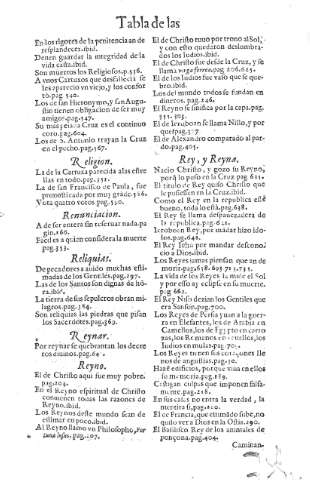 Tabla de las
En los rigores de la penitencia an de
resplandecer. ibid.
Denen guardar la integridad de la
vida casta. ibid.
Son muertos los Religiosos. p.536.
A vnos Cartuxos que desfallecia se
les aparecio vn viejo, y los confor
tò. pag. 540.
Los de san Hieronymo, y san Augu-
stin tienen obligacion de ser muy
amigos. pag. 147.
Su mageria la Cruz es el continuo
coro, pag. 604.
Los de S. Antonio trayan la Cruz
en el pecho. pag. 567.
Religion.
La de la Cartuxa parecida a las estre
llas en todo. pag. 531.
La de san Francisco de Paula, fue
prometida por muy grãde. 526.
Vota quatro votos. pag. 530.
Renunciacion.
A de ser entera sin reseruar nada. pa
gin. 166.
Facil es a quien considera la muerte
pag. 333.
Reliquias.
De pecadores a auido muchas esti-
madas de los Gentiles. pag. 197.
Las de los Santos son dignas de hõ-
ra. ibid.
La tierra de sus sepulcros obran mi-
lagros. pag. 384.
Son reliquias las piedras que pisan
los Sacerdotes. pag. 369.
Reynar.
Por reynar se quebrantan los decre
tos diuinos. pag.
Reyno.
El de Christo aqui fue muy pobre.
pag. 204.
En el Reyno espiritual de Christo
conuienen todas las razones de
Reyno. ibid.
Los Reynos deste mundo sean de
estimar en poco. ibid.
Al Reyno llamo vn Philosopho,
pag. 207.
El de Christo tuuo por trono al Sol,
y con esto quedaron deslumbra-
dos los Iudios. ibid.
El de Christo fue desde la Cruz, y se
llama vaga ferreo. pag. 206. 625.
El de los Iudios fue vaso que se que-
bro. ibid.
Los del mundo todos se fundan en
dineros. pag. 246.
El Reyno se significa por la cepa. pag.
351. 303.
El de Ieroboan se llama Niño, y por
que? pag. 317.
El de Alexandro comparado al par-
do. pag. 405.
Rey, y Reyna.
Nacio Christo, y gozo su Reyno,
pero lo puso en la Cruz pag 625.
El titulo de Rey quiso Christo que
le pusiessen en la Cruz. ibid.
Como el Rey en la republica esté
bueno, todo lo està. pag. 638.
El Rey se llama despauesadera de
la republica. pag. 622.
Ieroboan Rey, por matar hizo ido-
los. pag. 648.
El Rey Iehu por mandar descono-
cio a Dios. ibid.
Los Reyes iamas piensan que an de
morir. pag. 618. 695. 73. 735.
La vida de los Reyes la mide el Sol
y por esso ay eclipse en su muerte.
pag 662.
El Rey Niso dezian los Gentiles que
era San son. pag. 700.
Los Reyes de Persia yuan a la guer-
ra en Elefantes, los de Arabia en
Camellos, los de Egypto en carro
zas, los Romanos en cauallos, los
Iudios en mulas. pag. 705.
Los Reyes tienen sus corazones lle
nos de anguillas. pag. 30.
Haze edificios, porque viua en ellos
su memoria. pag. 189.
Castigan culpas que imponen falsa-
mente. pag. 218.
En sus casas no entra la verdad, la
mentira si. pag. 210.
El de Francia, que estimado sube, no
quiso vera Dios en la Ostia. 290.
El Basilisco Rey de los animales de
ponçoña. pag. 404.
Caminan-